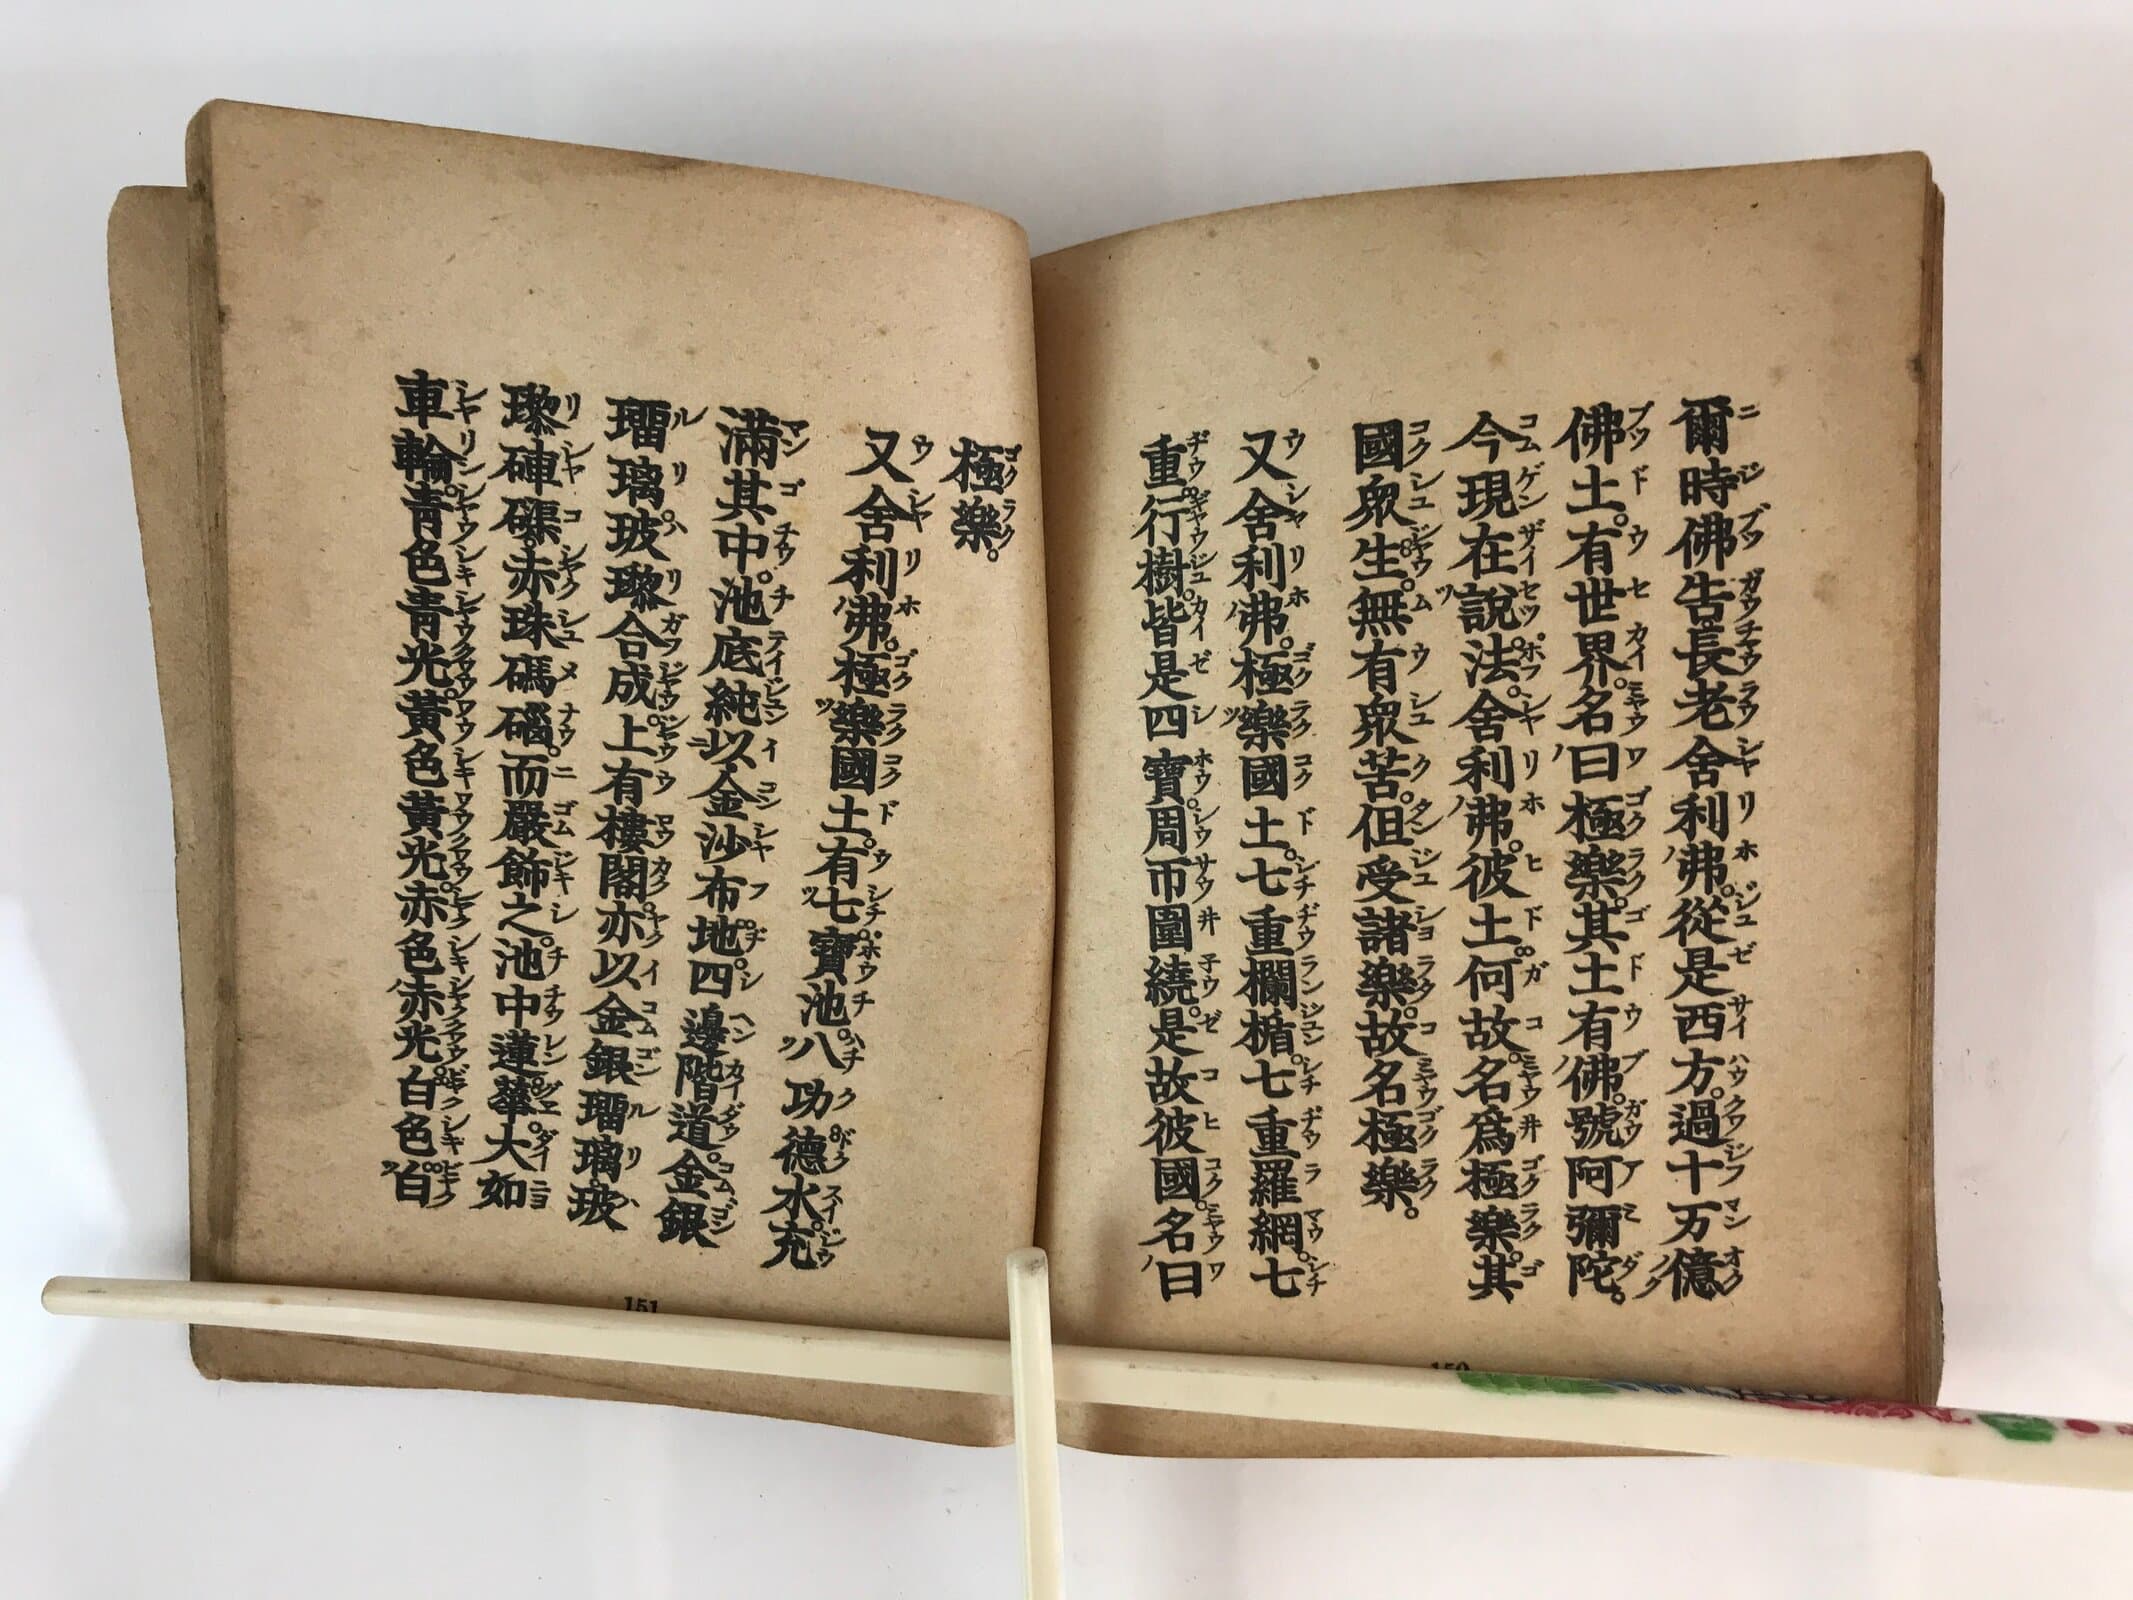 爾時佛告長老舍利弗。從是西方。過十万億
佛土。有世界。名曰極樂。其土有佛。號阿彌陀。
今現在說法。舍利弗。彼土何故。名爲極樂。其
國衆生。無有衆苦。但受諸樂。故名極樂。
又舍利弗。極樂國土。七重欄楯。七重羅網。七
重。行樹。皆是四寶。周帀圍繞。是故彼國。名曰
150
極樂。
又舍利弗。極樂國土。有七寶池。八功德水。充
滿其中。池底純以金沙布地。四邊階道。金銀
瑠璃。玻瓈合成。上有樓閣。亦以金銀瑠璃。玻
瓈硨磲。赤珠碼碯。而嚴飾之。池中蓮華。大如
車輪。青色青光。黃色黃光。赤色赤光。白色白
151